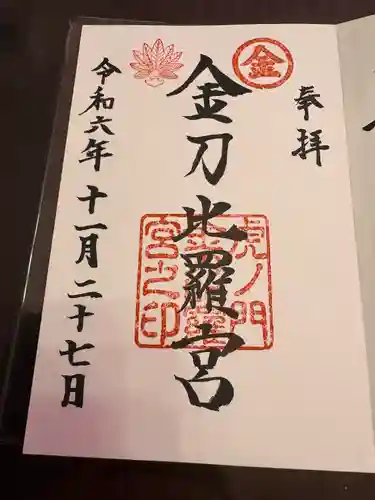 奉拝
金
金刀比羅宮
虎ノ門
金刀比羅
宮之印
令和六年十一月二十七日